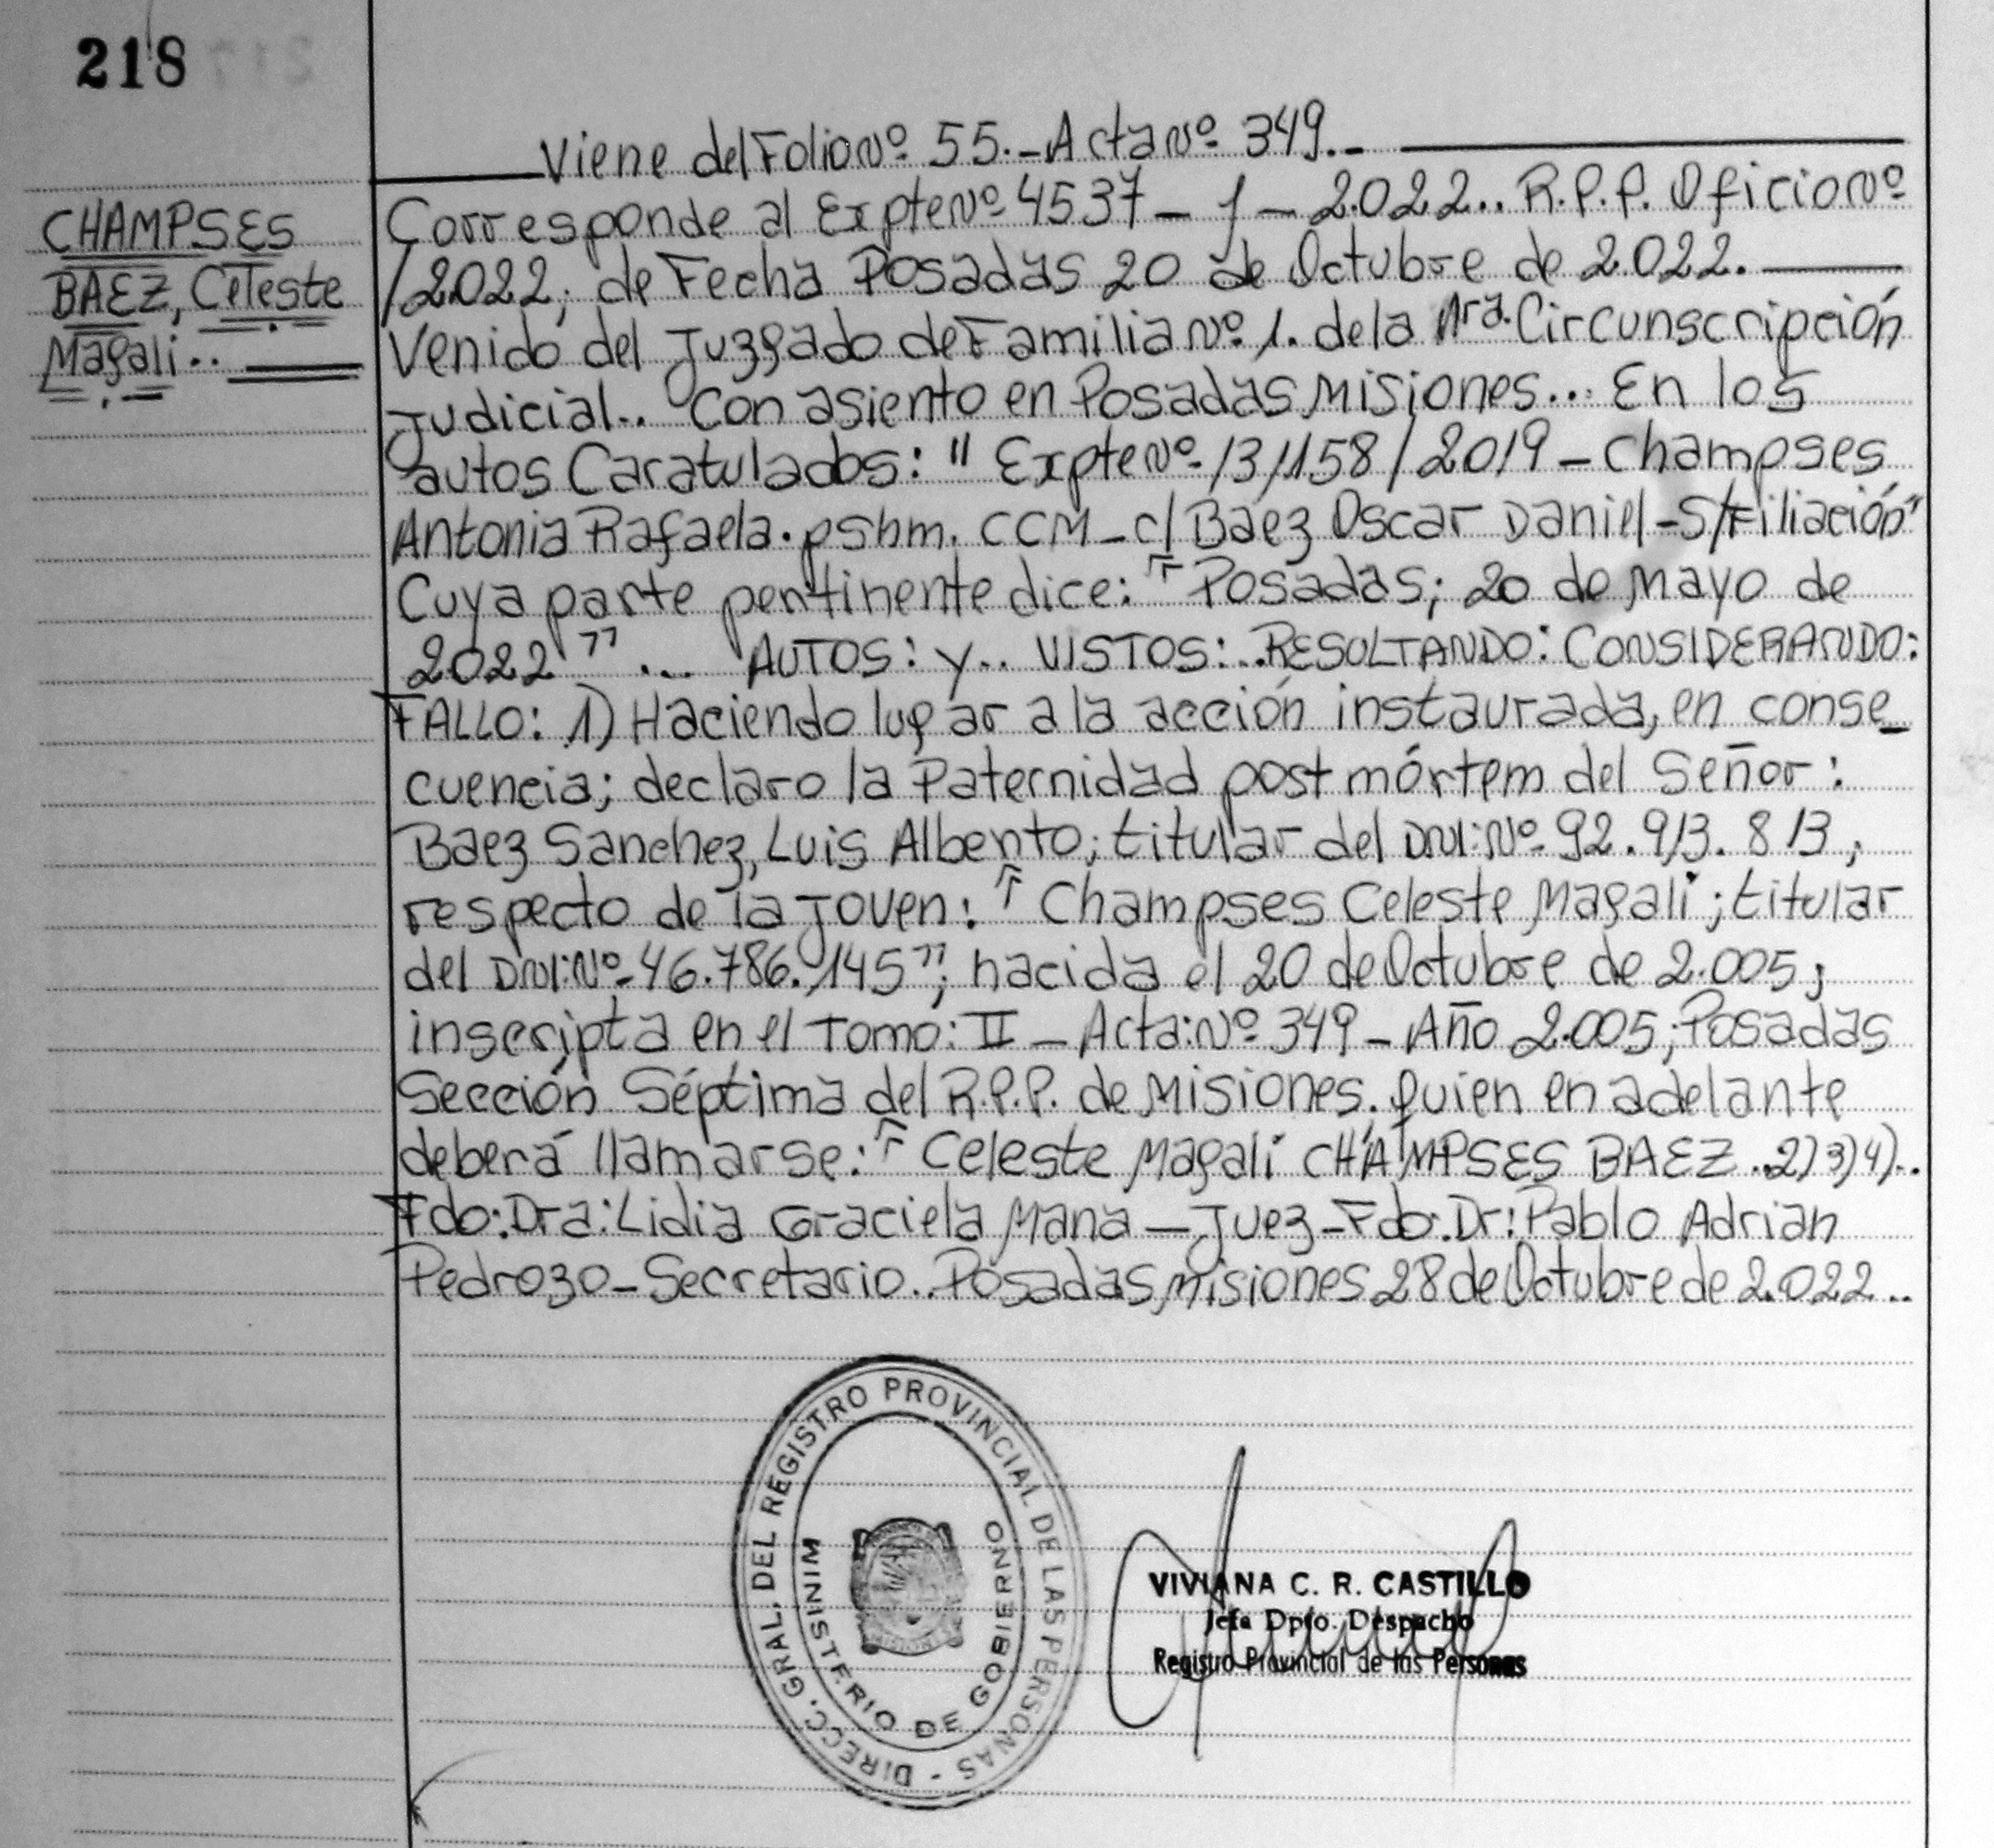 218
Viene del Folio Nº 55.- Acta Nº 349.-
CHAMPSES
BAEZ, Celeste
Magali..
Corresponde al Expte Nº 4537 - J - 2.022.. R.P.P. Oficio Nº
/2.022; de Fecha Posadas 20 de Octubre de 2.022.
Venido del Juzgado de Familia Nº 1. de la 1ra. Circunscripción
Judicial.. Con asiento en Posadas Misiones... En los
autos Caratulados: " Expte Nº 131158/2019 - Champses
Antonia Rafaela. pshm. CCM - c/ Baez Oscar Daniel - S/Filiación"
Cuya parte pertinente dice: "Posadas; 20 de Mayo de
2.022" ... AUTOS: y.. VISTOS:..RESULTANDO: CONSIDERANDO:
FALLO: 1) Haciendo lugar a la acción instaurada, en conse_
cuencia; declaro la Paternidad post mórtem del Señor:
Baez Sanchez, Luis Alberto; titular del DNI: Nº 92.913.813,
respecto de la Joven: " Champses Celeste Magali; titular
del DNI: Nº 46.786.145"; nacida el 20 de Octubre de 2.005;
inscripta en el Tomo: II - Acta: Nº 349 - Año 2.005; Posadas
Sección Séptima del R.P.P. de Misiones. Quien en adelante
deberá llamarse: " Celeste Magali CHAMPSES BAEZ..2)3)4)..
Fdo: Dra: Lidia Graciela Mana - Juez - Fdo: Dr: Pablo Adrian
Pedrozo - Secretario.. Posadas Misiones 28 de Octubre de 2.022..
DIRECC. GRAL. DEL REGISTRO PROVINCIAL DE LAS PERSONAS -
MINISTERIO DE GOBIERNO
VIVIANA C. R. CASTILLO
Jefa Dpto. Despacho
Registro Provincial de las Personas